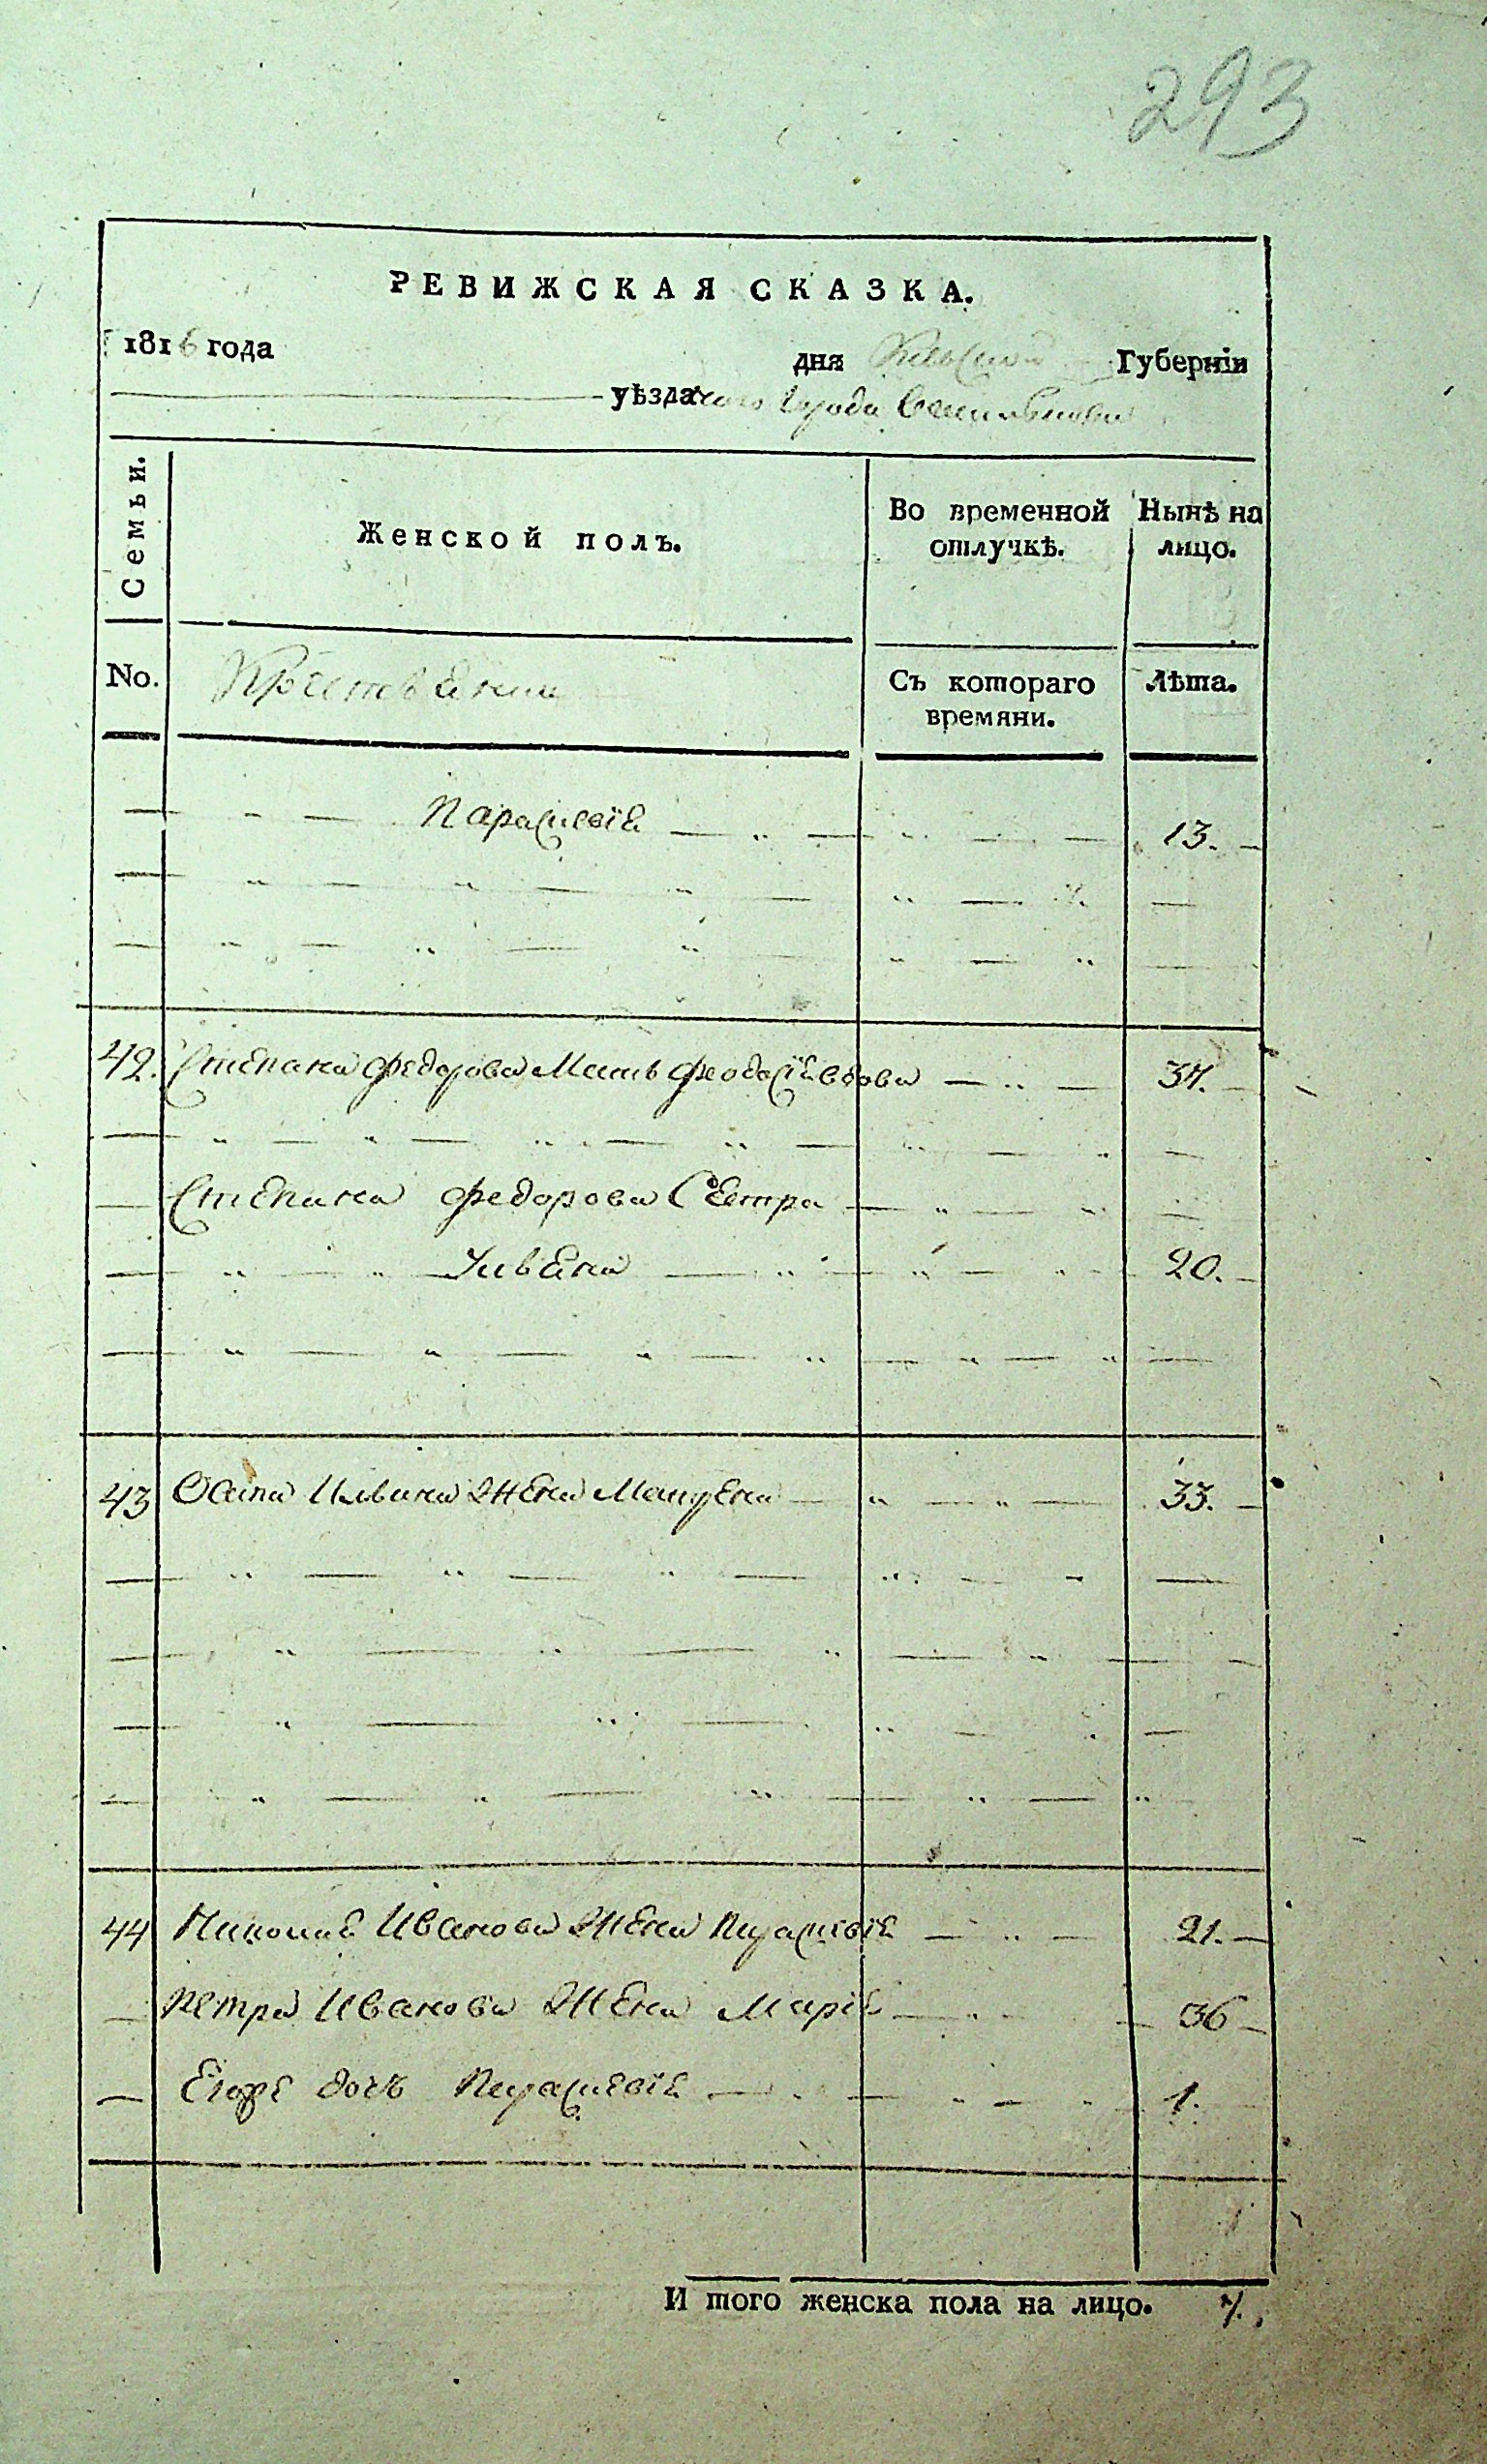 293
РЕВИЖСКАЯ СКАЗКА.
1816 года дня Губернiи
уѣзда города
Семьи. Женской полъ. Во временной отлучкѣ. Нынѣ на лицо.
No. Съ котораго времяни. Лѣта.
Параскевiя 13.
42. Степана Федорова Мать Феодосiя вдова
Степана Федорова Сестра
Ульяна 20.
43 Осипа Ильина Жена Матрена 33.
44 Николая Иванова Жена Параскевiя 21.
Петра Иванова Жена Марiя 36
Его дочь Параскевiя 1.
И того женска пола на лицо. 7.